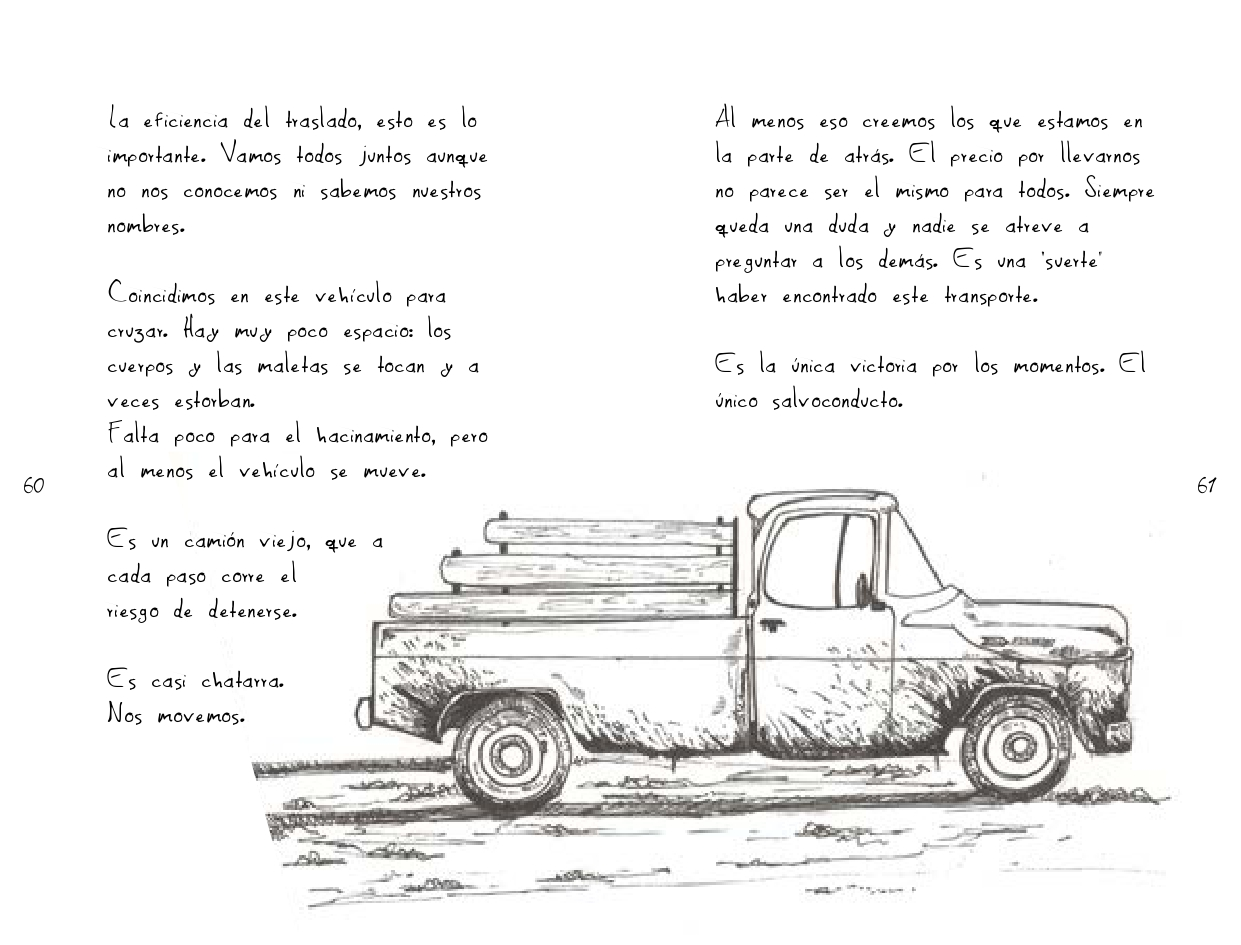 La eficiencia del traslado, esto es lo
importante. Vamos todos juntos aunque
no nos conocemos ni sabemos nuestros
nombres.
Coincidimos en este vehículo para
cruzar. Hay muy poco espacio: los
cuerpos y las maletas se tocan y a
veces estorban.
Falta poco para el hacinamiento, pero
al menos el vehículo se mueve.
Es un camión viejo, que a
cada paso corre el
riesgo de detenerse.
Es casi chatarra.
Nos movemos.
60
Al menos eso creemos los que estamos en
la parte de atrás. El precio por llevarnos
no parece ser el mismo para todos. Siempre
queda una duda y nadie se atreve a
preguntar a los demás. Es una 'suerte'
haber encontrado este transporte.
Es la única victoria por los momentos. El
único salvoconducto.
61